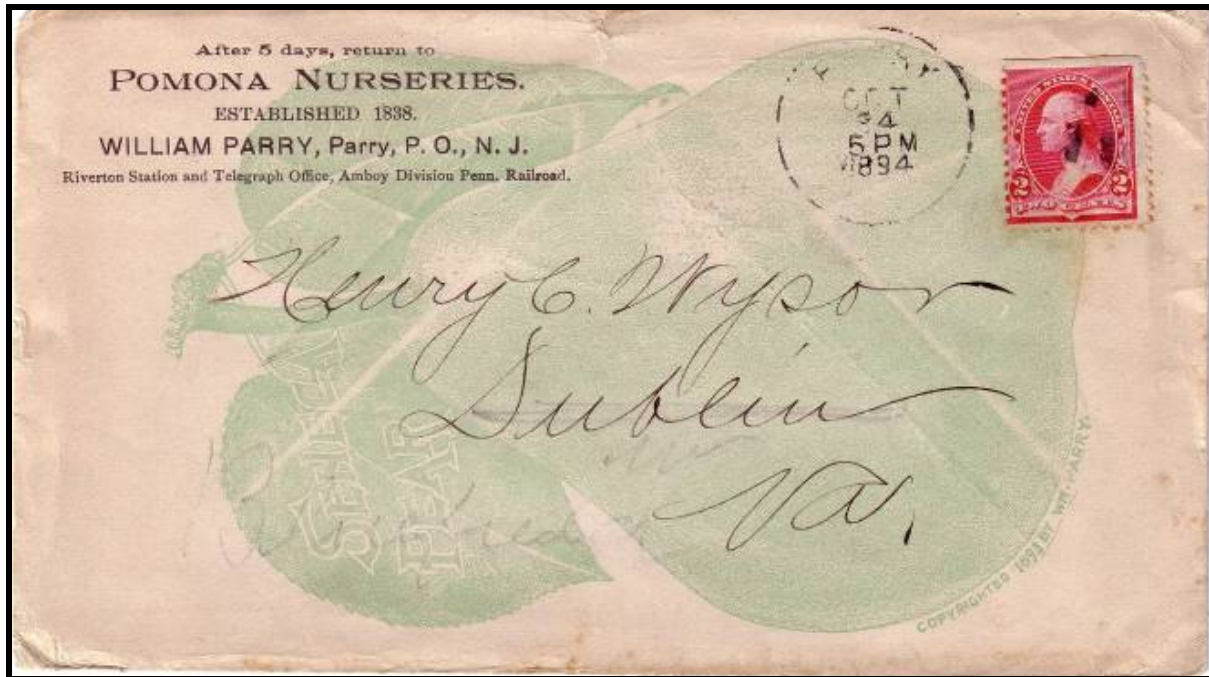 After 5 days, return to
POMONA NURSERIES.
ESTABLISHED 1838.
WILLIAM PARRY, Parry, P. O., N. J.
Riverton Station and Telegraph Office, Amboy Division Penn. Railroad.
OCT
5 PM
1894
UNITED STATES POSTAGE
2 2
TWO CENTS
Henry C. Wysor
Dublin
Va.
SENECA
PEAR
COPYRIGHTED 1893 BY WM. PARRY.